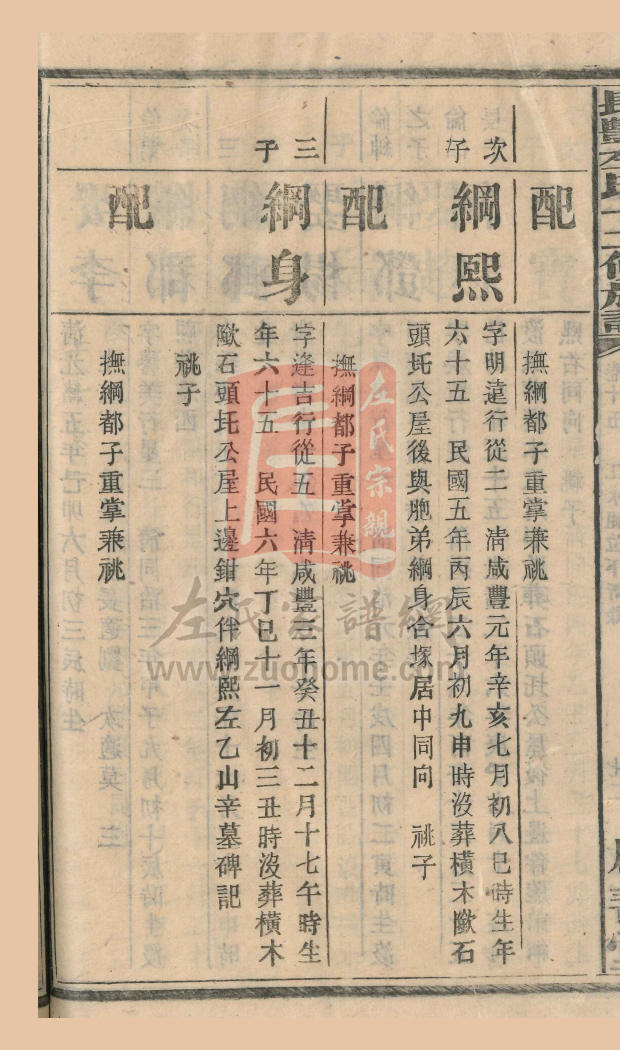 配
撫綱都子重掌兼祧
次子
綱熙
字明達行從二 清咸豐元年辛亥七月初八巳時生年
六十五 民國五年丙辰六月初九申時沒葬橫木歐石
頭托公屋後與胞弟綱身合塚居中同向 祧子
配
撫綱都子重掌兼祧
三子
綱身
字逢吉行從五 清咸豐三年癸丑十二月十七午時生
年六十五 民國六年丁巳十一月初三丑時沒葬橫木
歐石頭托公屋上邊鉗穴伴綱熙左乙山辛墓碑記
祧子
配
撫綱都子重掌兼祧
左氏宗親
左氏家譜網
www.zuohome.com